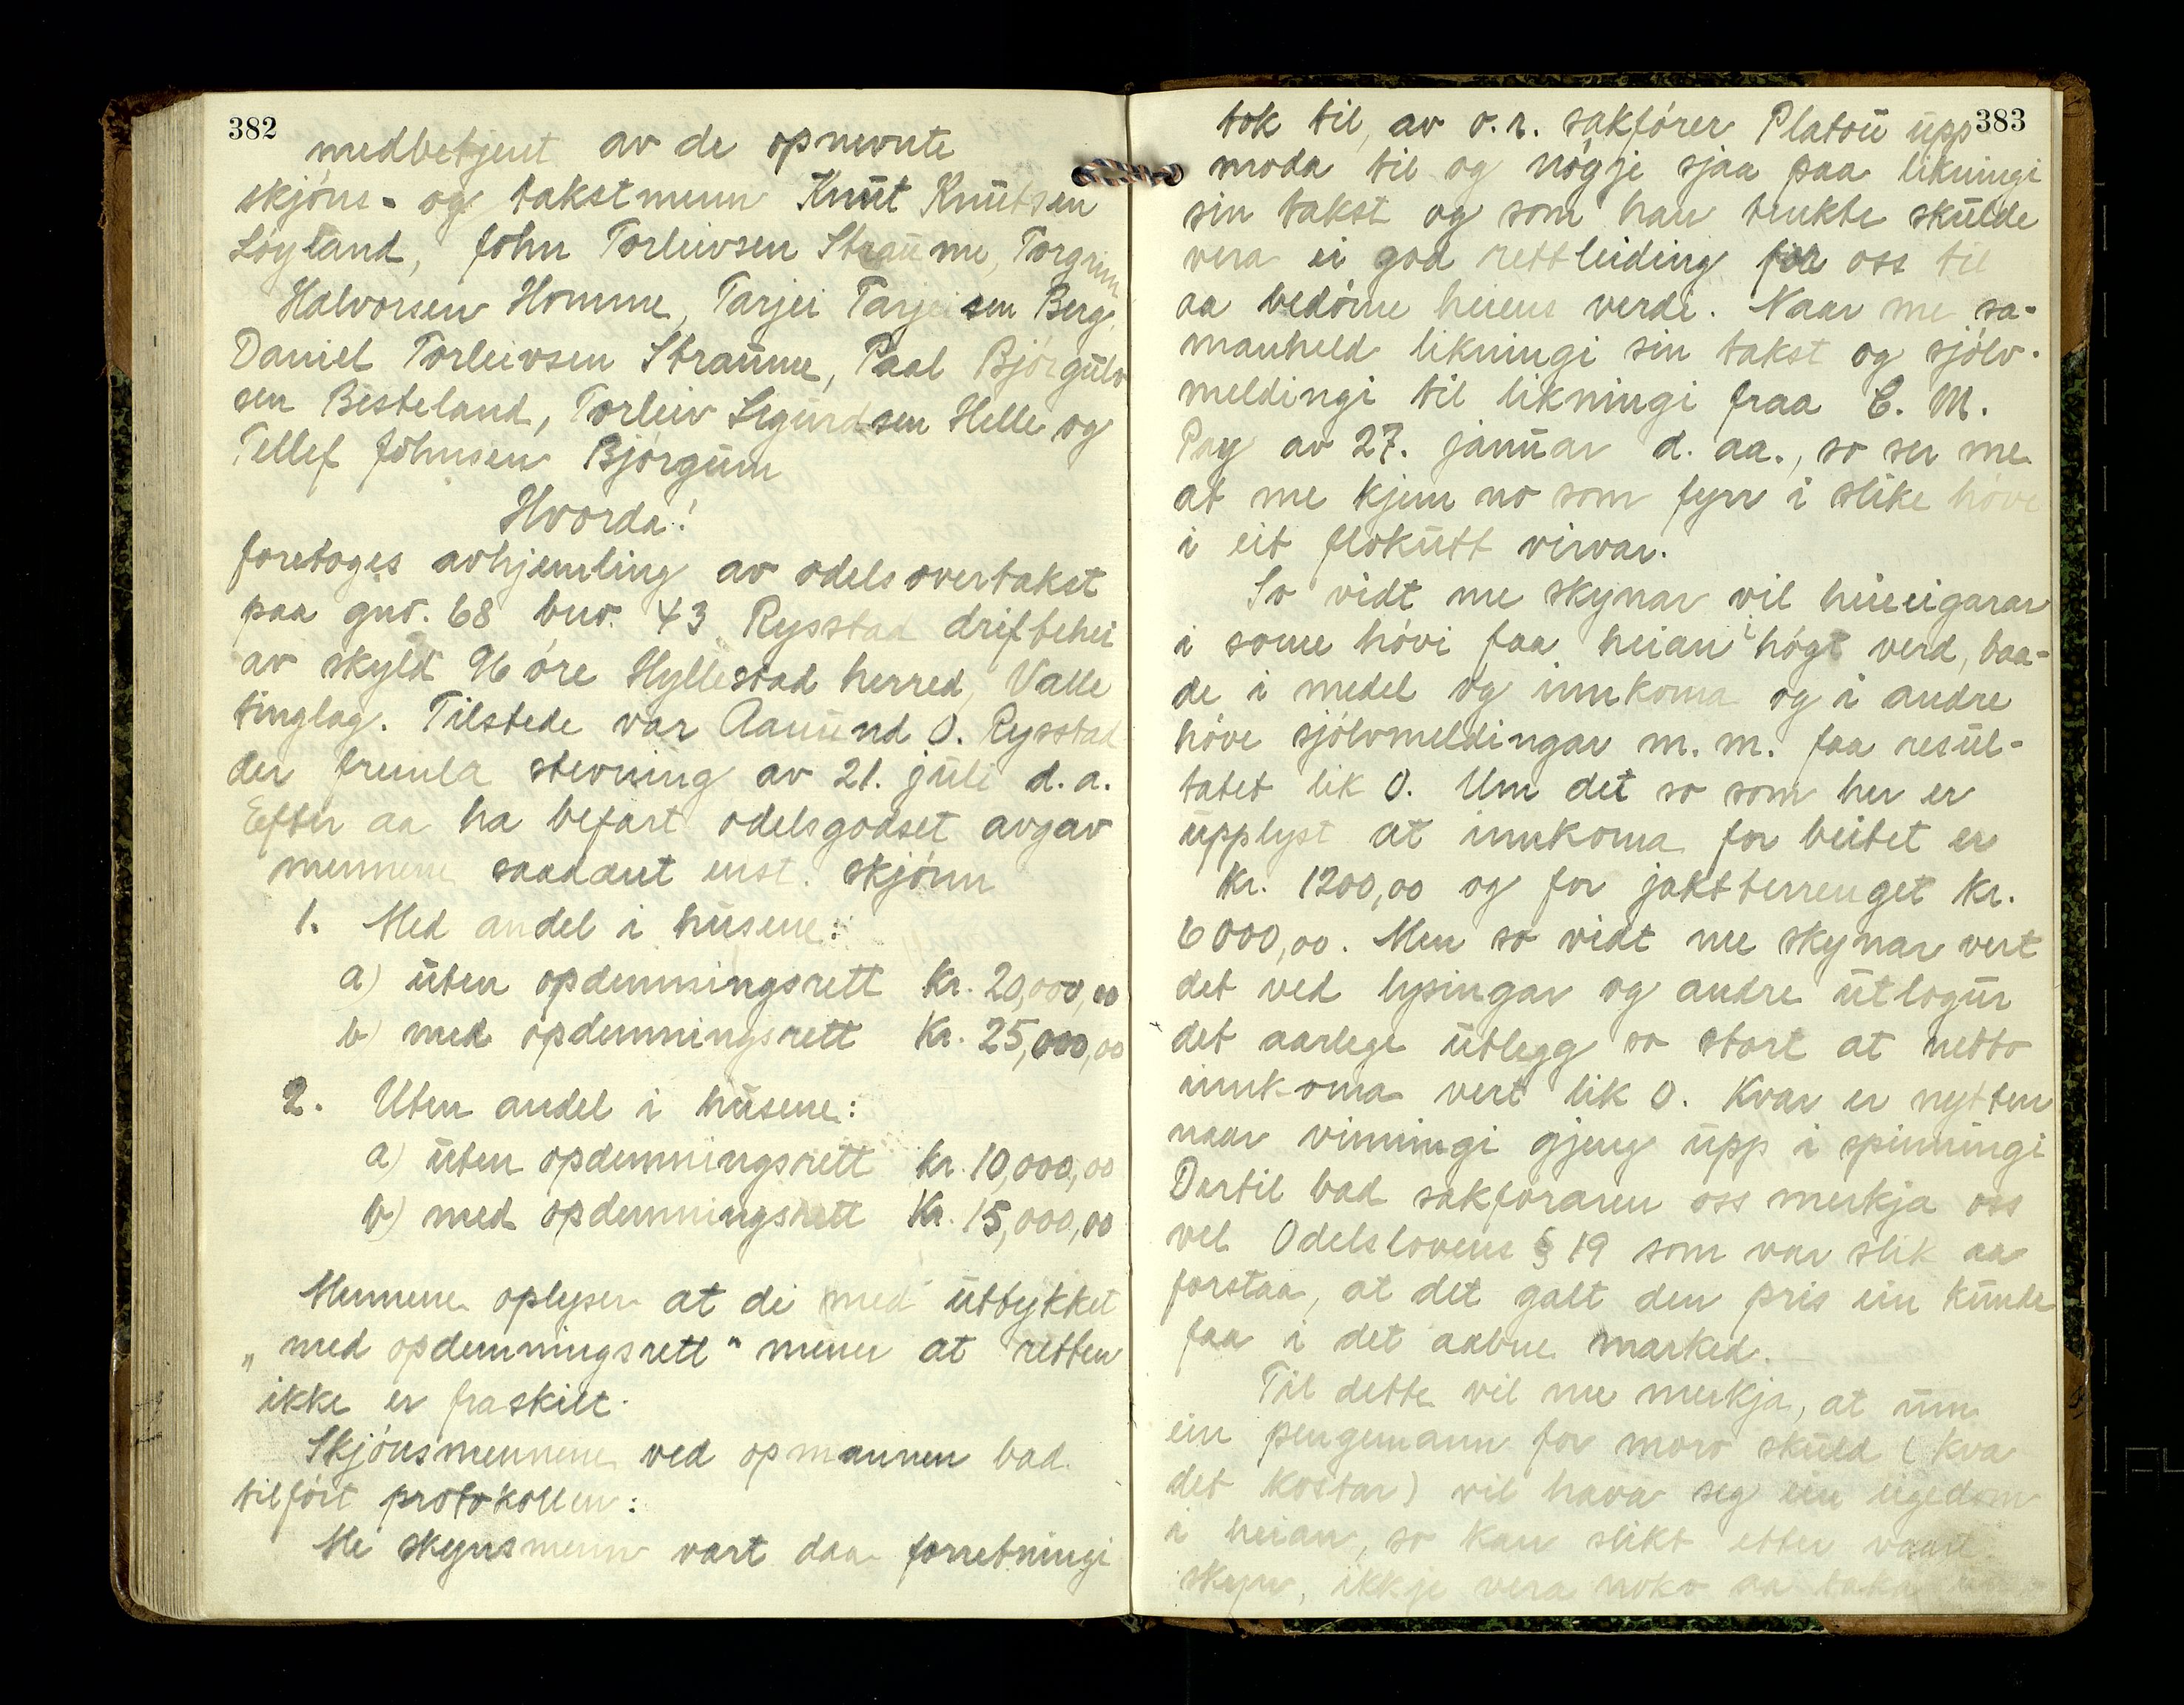 382
medbetjent av de opnevnte
skjøns- og takstmenn Knut Knutsen
Løyland, John Torleivsen Straume, Torgrim
Halvorsen Homme, Tarjei Tarjeisen Berg,
Daniel Torleivsen Straume, Paal Bjørgulv
sen Besteland, Torleiv Sigurdsen Helle og
Tellef Johnsen Bjørgum
Hvorda!
foretoges avhjemling av odelsovertakst
paa gnr. 68 bnr. 43 Rysstad driftehei
av skyld 96 øre Hyllestad herred, Valle
tinglag. Tilstede var Aamund O. Rysstad
der fremla stevning av 21. juli d. a.
Efter aa ha befart odelsgodset avgav
mennene saadant enst. skjønn
1. Med andel i husene:
a) uten opdemningsrett Kr. 20,000,00
b) med opdemningsrett Kr. 25,000,00
2. Uten andel i husene:
a) uten opdemningsrett Kr. 10,000,00
b) med opdemningsrett Kr. 15,000,00
Mennene oplyser at de med uttykket
„med opdemningsrett" mener at retten
ikke er fraskilt.
Skjønsmennene ved opmannen bad
tilført protokollen:
Me skynsmenn vart daa forretningi
383
tok til, av o.r. sakfører Platou upp
moda til og nøgje sjaa paa likningi
sin takst og som han tenkte skulde
vera ei god rettleiding for oss til
aa bedøme heiens verdi. Naar me sa-
manheld likningi sin takst og sjølv-
meldingi til likningi fraa C. M.
Pay av 27. januar d. aa., so ser me
at me kjem no som fyrr i slike høve
i eit flokutt virvar.
So vidt me skynar vil heieeigarar
i some høvi faa heian i høgt verd, baa-
de i medel og innkoma og i andre
høve sjølvmeldingar m. m. faa resul-
tatet lik 0. Um det so som her er
upplyst at innkoma for beitet er
Kr. 1200,00 og for jaktterrenget Kr.
6000,00. Men so vidt me skynar vert
det ved lysingar og andre utlogur
det aarlege utlegg so stort at netto
innkoma vert lik 0. Kvar er nytten
naar vinningi gjeng upp i spinningi
Dertil bad sakføraren oss merkja oss
vel Odelslovens § 19 som var slik aa
forstaa, at det galt den pris ein kunde
faa i det aabne marked.
Til dette vil me merkja, at um
ein pengemann for moro skuld (kva
det kostar) vil hava seg ein eigedom
i heian, so kan slikt etter vaart
skyn, ikkje vera noko aa taka